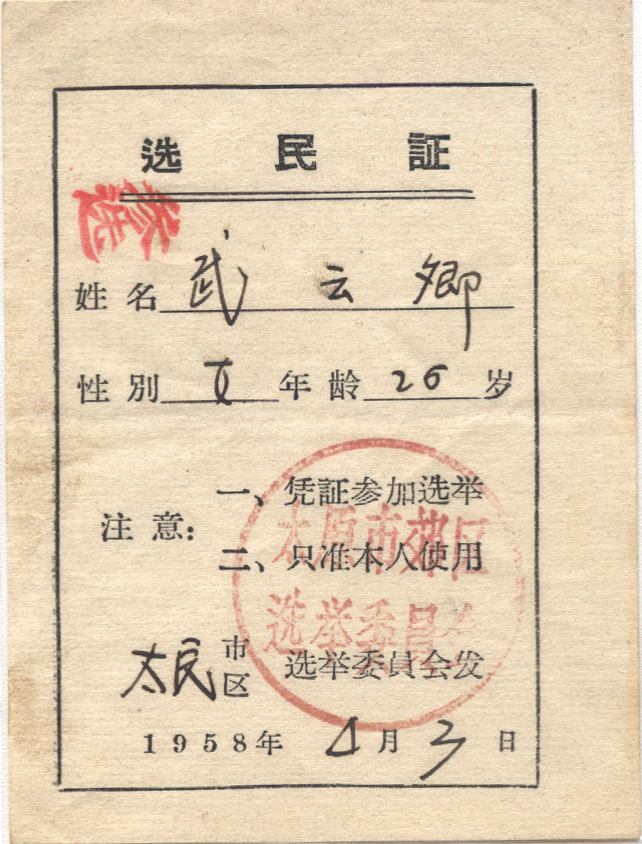 选民証
参选
姓名 武云卿
性别 女 年龄 26 岁
注意：
一、凭証参加选举
二、只准本人使用
太原市郊区
选举委員会
市
区
选举委員会发
1958年 4月3日